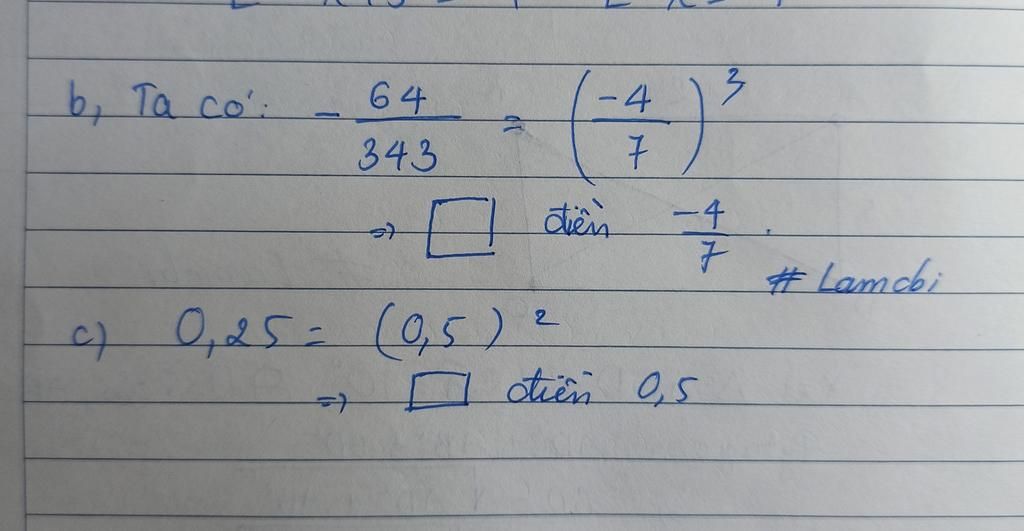 b, Ta có: - 64/343 = (-4/7)^3
=> □ điền -4/7 .
# Lamcbi
c) 0,25 = (0,5)^2
=> □ điền 0,5